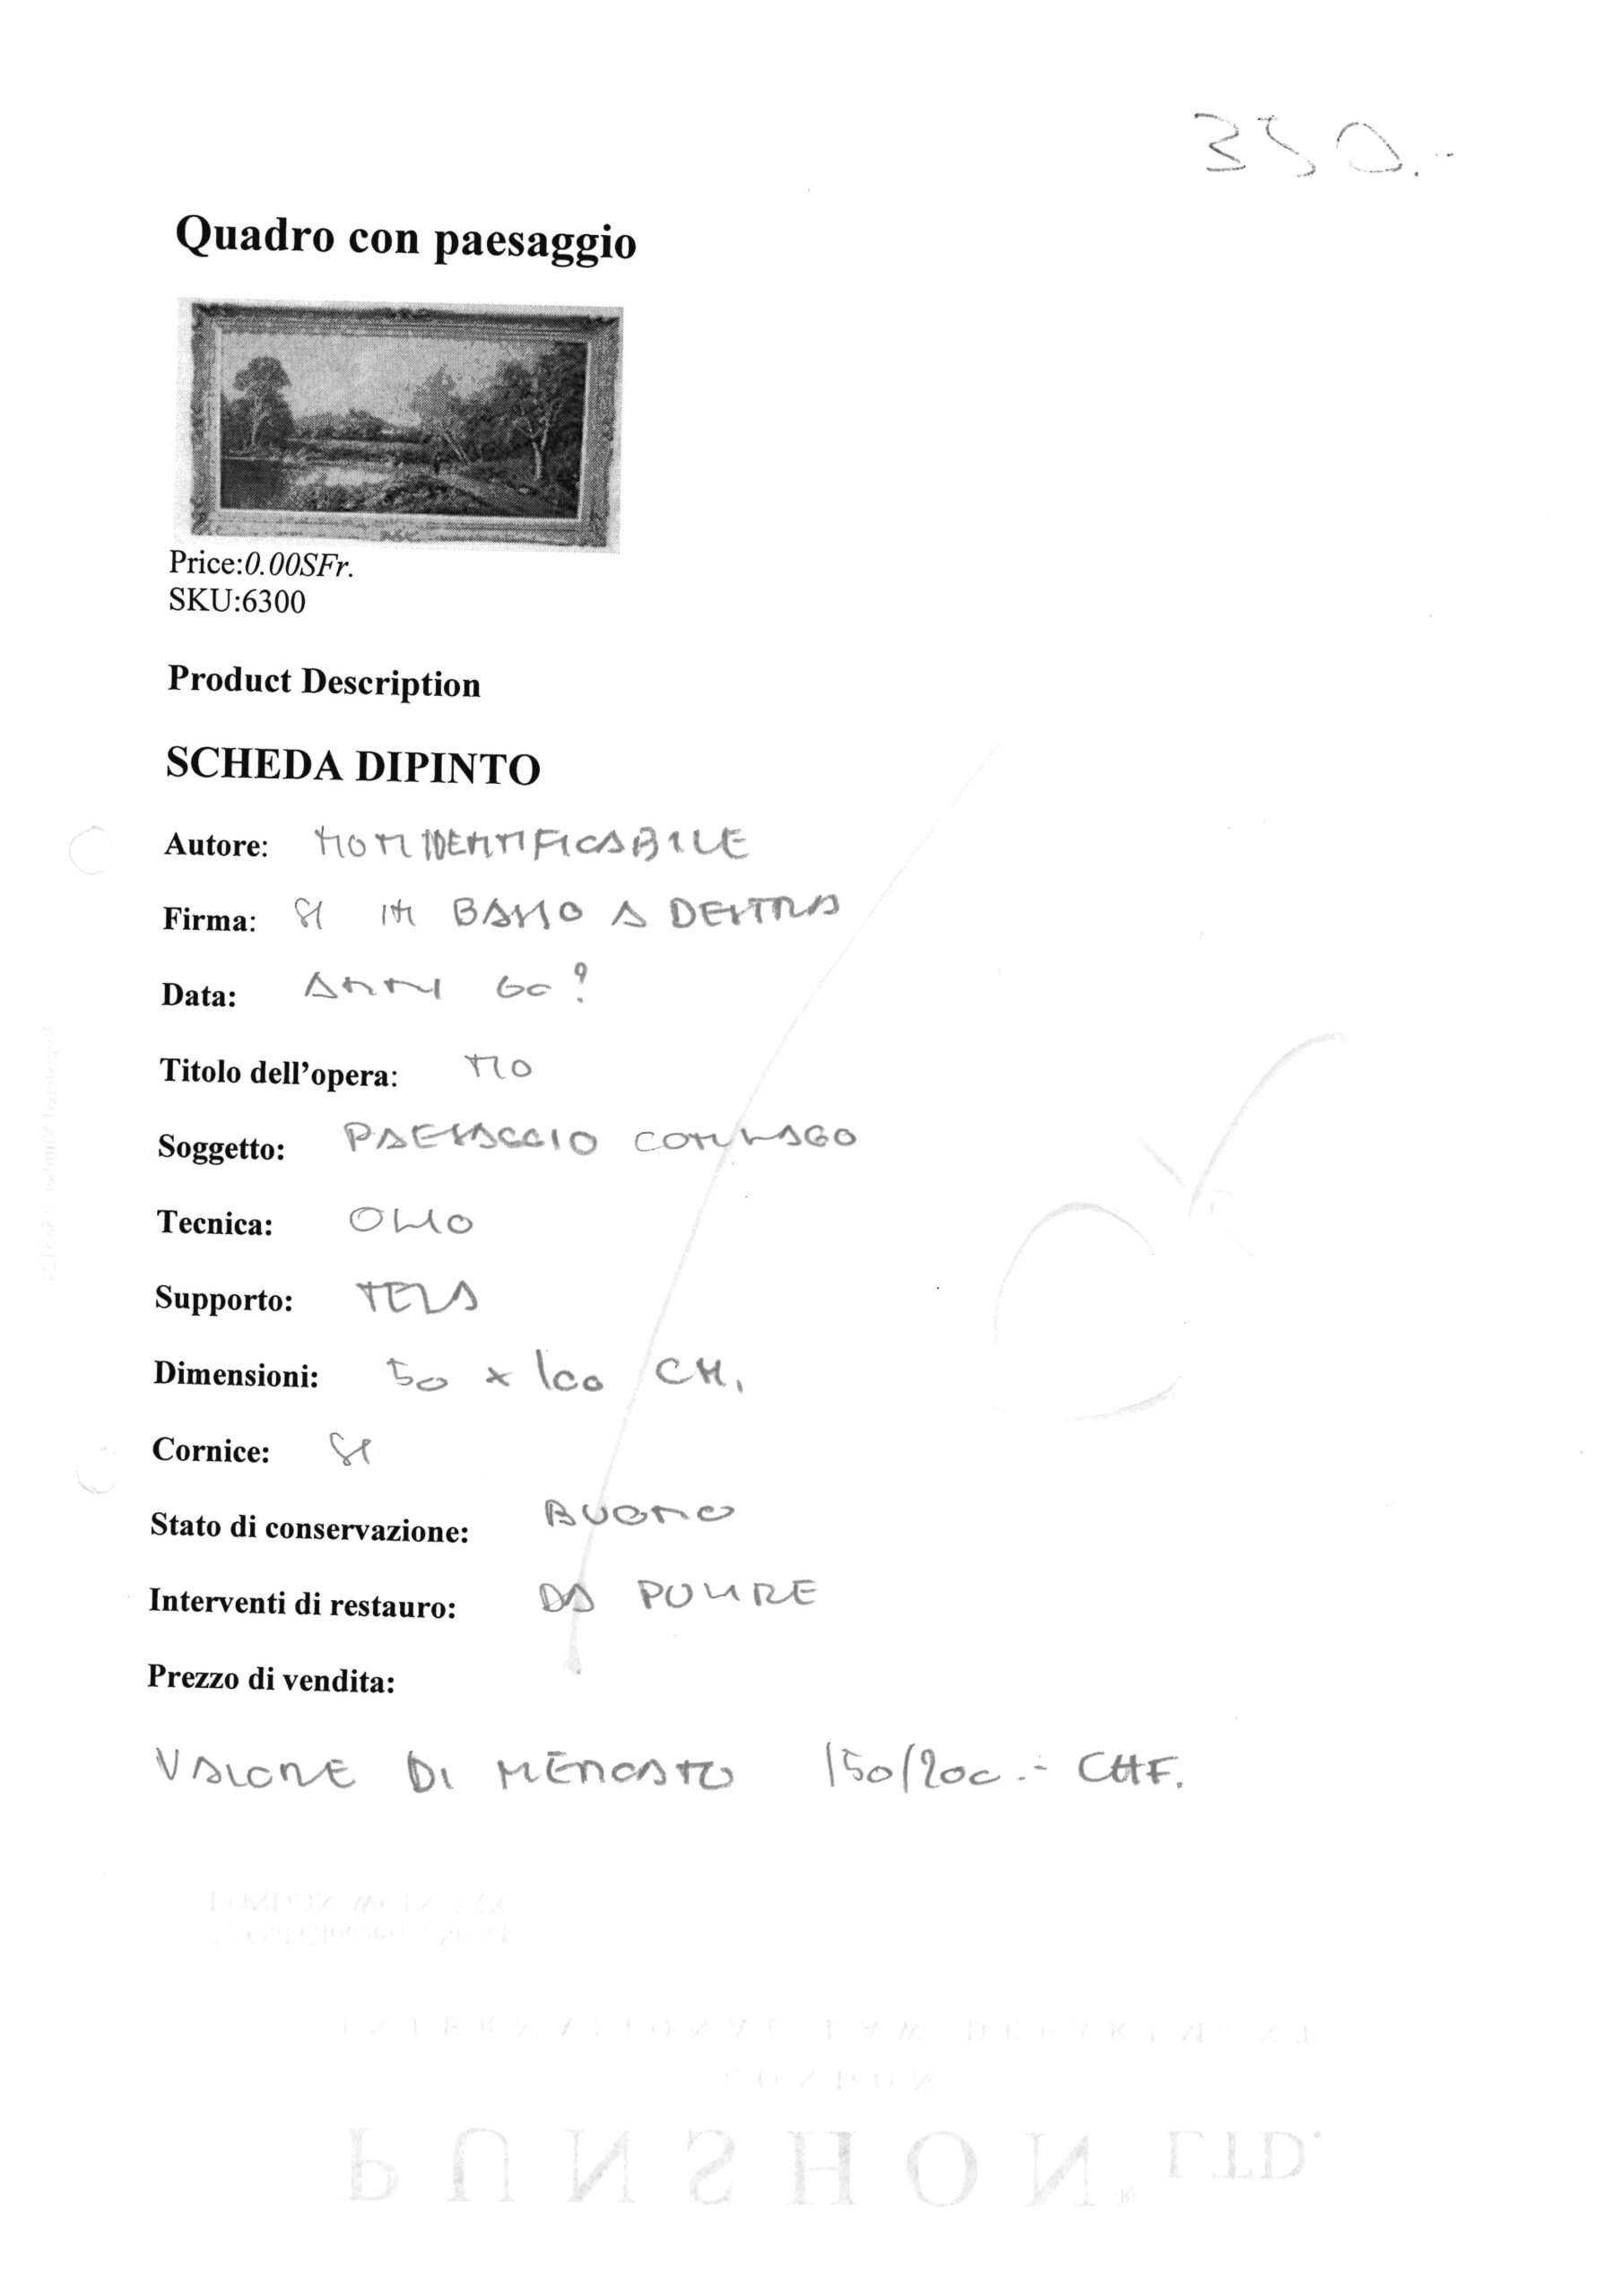 350.-
Quadro con paesaggio
Price:0.00SFr.
SKU:6300
Product Description
SCHEDA DIPINTO
Autore: NON IDENTIFICABILE
Firma: SI IN BASSO A DESTRA
Data: ANNI 60?
Titolo dell'opera: NO
Soggetto: PAESAGGIO CON LAGO
Tecnica: OLIO
Supporto: TELA
Dimensioni: 50 x 100 CM.
Cornice: SI
Stato di conservazione: BUONO
Interventi di restauro: DA PULIRE
Prezzo di vendita:
VALORE DI MERCATO 150/200.- CHF.
INTERNATIONAL LAW DEPARTMENT
LONDON
PUNSHON® LTD.